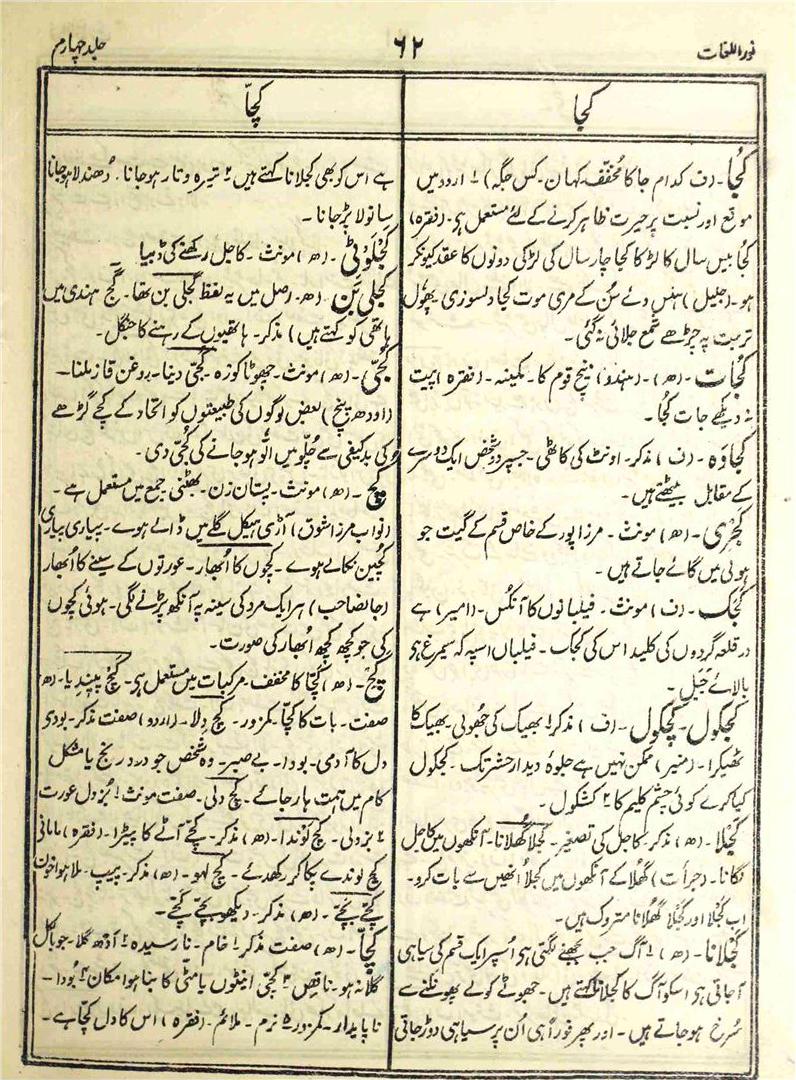 نور اللغات
۶۲
جلد چہارم
کجا
کچّا
کُجا۔ (ف کدام جا کا مُخفّف کہاں۔ کس جگہ) ۱ اردو میں
موقع اور نسبت پر حیرت ظاہر کرنے کے لئے مستعمل ہی۔ (فقرہ)
کُجا بیس سال کا لڑکا کجا چار سال کی لڑکی دونوں کا عقد کیونکر
ہو۔ (جلیل) ہنس دئے سُن کے مری موت کجا دلسوزی پھول
تربت پہ چڑھے شمع جلائی نہ گئی۔
کُجات۔ (ھ)۔ (ہندو) نیچ قوم کا۔ کمینہ۔ (فقرہ) پریت
نہ دیکھے جات کُجا۔
کجاوَہ۔ (ف) مذکر۔ اونٹ کی کاٹھی۔ جسپر دو شخص ایک دوسرے
کے مقابل بیٹھتے ہیں۔
کجری۔ (ھ) مونث۔ مرزا پور کے خاص قسم کے گیت جو
ہولی میں گائے جاتے ہیں۔
کُجَک۔ (ف) مونث۔ فیلبانوں کا آنکُس۔ (امیر) ہے
در قلعہ گردوں کی کلید اس کی کجک۔ فیلباں اسپہ کہ سیمرغ ہی
بالائے جَبَل۔
کجکول۔ کچکول۔ (ف) مذکر ۱ بھیک کی جھولی۔ بھیک کا
ٹھیکرا۔ (منیر) ممکن نہیں ہے جلوۂ دیدار حشر تک۔ کجکول
کیا کرے کوئی چشم کلیم کا ۲ کشکول۔
کَجلا۔ (ھ) مذکر۔ کاجل کی تصغیر۔ کجلا گھلانا۔ آنکھوں میں کاجل
لگانا۔ (جرأت) گھُلا کے آنکھوں میں کجلا اُنھیں سے بات کرو۔
اب کجلا اور کجلا گھُلانا متروک ہیں۔
کَجلانا۔ (ھ) ۱ آگ جب بجھنے لگتی ہی اُسپر ایک قسم کی سیاہی
آجاتی ہی اسکو آگ کا کجلانا کہتے ہیں۔ جھوٹے کوئلے پھونکنے سے
سُرخ ہوجاتے ہیں۔ اور پھر فوراً ہی اُن پر سیاہی دوڑ جاتی
ہے اس کو بھی کجلانا کہتے ہیں ۲ تیرہ و تار ہوجانا۔ دُھندلا ہوجانا
سانولا پڑجانا۔
کَجلوٹی۔ (ھ) مونث۔ کاجل رکھنے کی ڈبیا۔
کجلی بَن۔ (ھ۔ اصل میں یہ لفظ گجلی بن تھا۔ گج ہندی میں
ہاتھی کو کہتے ہیں) مذکر۔ ہاتھیوں کے رہنے کا جنگل۔
کُجّی۔ (ھ) مونث۔ چھوٹا کوزہ۔ کُجّی دینا۔ روغن قاز ملنا۔
(اودھ پنچ) بعض لوگوں کی طبیعتوں کو اتحاد کے کچے گڑھے
کی بدکیفی سے چُلّو میں اُلّو ہوجانے کی کُجّی دی۔
کُچ۔ (ھ) مونث۔ پستان زن۔ بھٹنی جمع میں مستعمل ہے۔
(نواب مرزا شوق) آڑی ہیکل گلے میں ڈالے ہوے۔ پیاری پیاری
کُچیں نکالے ہوے۔ کچوں کا اُبھار۔ عورتوں کے سینے کا اُبھار
(جانصاحب) ہر ایک مرد کی سینہ پہ آنکھ پڑنے لگی۔ ہوئی کچوں
کی جو کچھ کچھ اُبھار کی صورت۔
کچ۔ (ھ) کچّا کا مخفف۔ مرکبات میں مستعمل ہی۔ کچ پیندیا۔ (ھ)
صفت۔ بات کا کچّا۔ کمزور۔ کچ دِلا۔ (اردو) صفت مذکر۔ بودی
دل کا آدمی۔ بودا۔ بے صبر۔ وہ شخص جو درد رنج یا مشکل
کام میں ہمت ہار جائے۔ کچ دلی۔ صفت مونث ۱ بُزدل عورت
۲ بزدلی۔ کچ لوندا۔ (ھ) مذکر۔ کچّے آٹے کا پیڑا۔ (فقرہ) مامانی
کچ لوندے پکا کر رکھدئے۔ کچ لہو۔ (ھ) مذکر۔ پیپ ملا ہوا خون
کچّے بَچّے۔ (ھ) مذکر۔ دیکھو بچّے کچّے۔
کَچّا۔ (ھ) صفت مذکر ۱ خام۔ نارسیدہ ۲ آدھ گلا۔ جو بالکل
گلا نہ ہو۔ ناقص ۳ کچّی اینٹوں یا مٹّی کا بنا ہوا مکان ۴ بُودا۔
ناپایدار۔ کمزور ۵ نرم۔ ملائم۔ (فقرہ) اس کا دل کچّا ہے۔